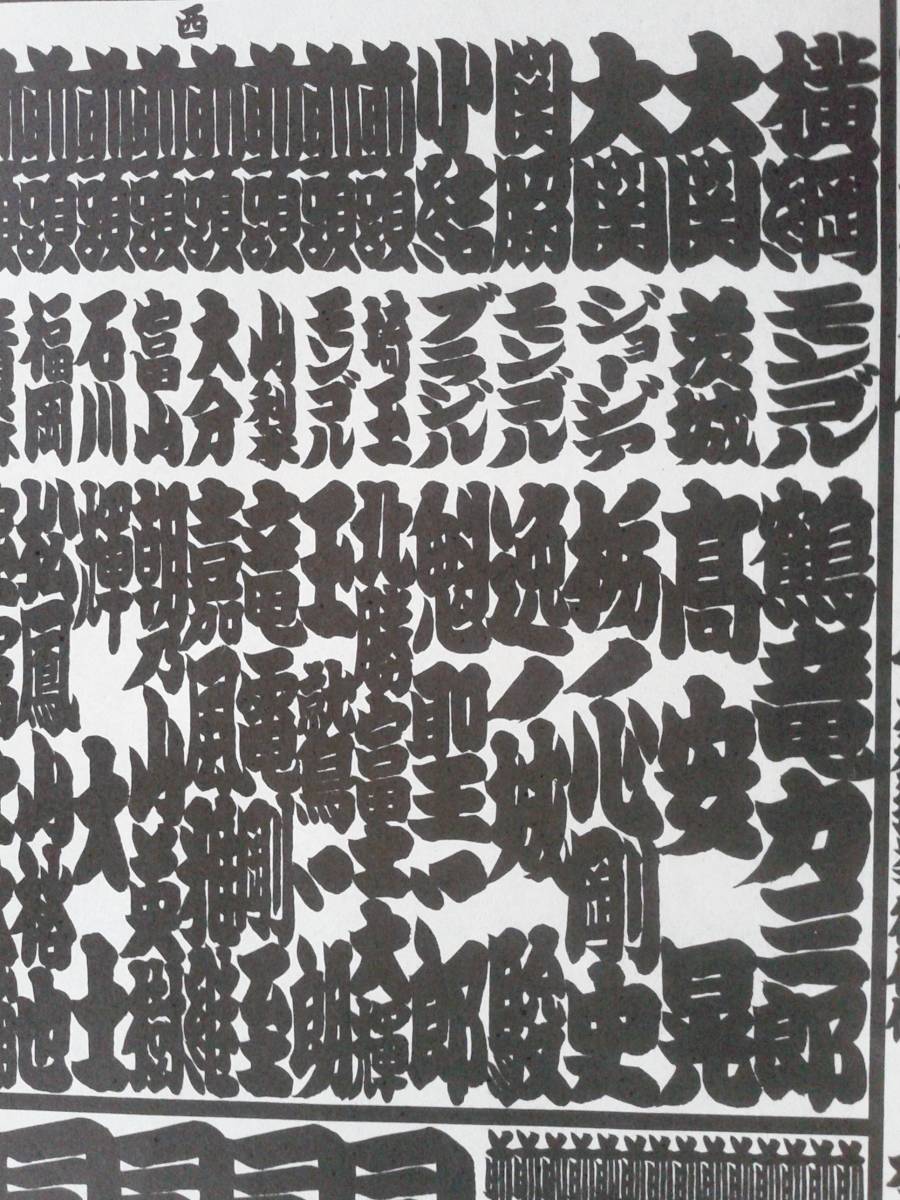 西
横綱 モンゴル 鶴竜力三郎
大関 茨城 髙安晃
大関 ジョージア 栃ノ心剛史
関脇 モンゴル 逸ノ城駿
小結 ブラジル 魁聖一郎
前頭 埼玉 北勝富士大輝
前頭 モンゴル 玉鷲一朗
前頭 山梨 竜電剛至
前頭 大分 嘉風雅継
前頭 富山 朝乃山英樹
前頭 石川 輝大士
前頭 福岡 松鳳山裕也